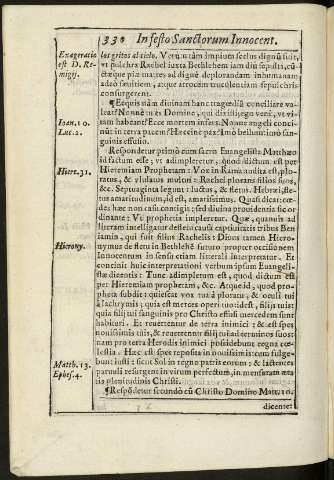 330 In festo Sanctorum Innocent.
Exageratio
est D. Re-
migij.
los gritos al cielo. Verũ tãm impium scelus dignũ fuit,
vt pulchra Rachel iuxta Bethlehem iam diu sepulta, cũ
ctæque piæ matres ad digné deplorandam inhumanam
adeò sæuitiem, atque atrocem truculentiam sepulchris
consurgerent.
¶ Ecquis nam diuinam hanc tragœdiã conciliare va-
leat? Nonne tu es Domino, qui dixisti, ego veni, vt vi-
tam habeant? Ecce mortem infers. Nonne angeli conci-
nũt in terra pacem? Heccine pax? Imò bellum: imò san-
guinis effusio.
Ioan. 10.
Luc. 2.
Respondetur primò cum sacro Euangelista Matthæo
id factum esse; vt adimpleretur, quod dictum est per
Hieremiam Prophetam: Vox in Rama audita est, plo-
ratus, & vlulatus multus: Rachel plorans filios suos,
&c. Septuaginta legunt: luctus, & fletus. Hebræi, fle-
tus amaritudinum, id est, amarissimus. Quasi dicat: cæ-
des hæc non casu contigit; sed diuina prouidentia sic or
dinante: Vt prophetia impleretur. Quæ, quamuis ad
literam intelligatur de fletu causa captiuitatis tribus Ben
iamin, qui fuit filius Rachelis: Diuus tamen Hiero-
nymus de fletu in Bethlehẽ futuro propter occisionem
Innocentum in sensu etiam litterali interpretatur. Et
concinit huic interpretationi verbum ipsum Euangeli-
stæ dicentis: Tunc adimpletum est, quod dictum est
per Hieremiam prophetam, &c. Atque id, quod pro-
pheta subdit: quiescat vox tua à ploratu, & oculi tui
à lachrymis; quia est merces operi tuo: id est, filijs tuis:
quia filij tui sanguinis pro Christo effusi mercedem sunt
habituri. Et reuertentur de terra inimici; & est spes
nouissimis tuis, & reuertentur filij tui ad terminos suos:
nam pro terra Herodis inimici possidebunt regna cœ-
lestia. Hæc est spes reposita in nouissimis: cum fulge-
bunt iusti sicut Sol in regno patris eorum; & lactentes
paruuli resurgent in virum perfectum, in mensuram æta
tis plenitudinis Christi.
Hiere. 31.
Hierony.
Matth. 13.
Ephes. 4.
¶ Respõdetur secundò cũ Christo Domino Matt. 10.
dicente: